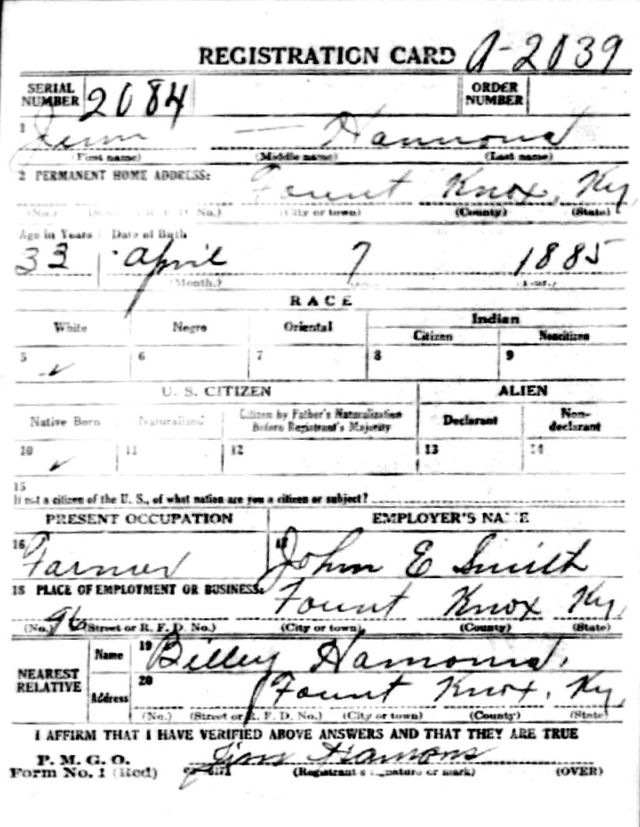 REGISTRATION CARD A-2039
SERIAL NUMBER 2084 ORDER NUMBER
1 Jim — Hamond
(First name) (Middle name) (Last name)
2 PERMANENT HOME ADDRESS: Fount Knox, Ky
(No.) R. F. D. No.) (City or town) (County) (State)
Age in Years Date of Birth
33 April 7 1885
(Month.)
RACE
White Negro Oriental Indian
Citizen Noncitizen
5 ✓ 6 7 8 9
U. S. CITIZEN ALIEN
Native Born Naturalized Citizen by Father's Naturalization Before Registrant's Majority Declarant Non-declarant
10 ✓ 11 12 13 14
15
If not a citizen of the U. S., of what nation are you a citizen or subject?
PRESENT OCCUPATION EMPLOYER'S NAME
16 Farmer 17 John E Smith
18 PLACE OF EMPLOYMENT OR BUSINESS: Fount Knox Ky,
(No.) (Street or R. F. D. No.) (City or town) (County) (State)
NEAREST RELATIVE Name 19 Billey Hamond,
Address 20 Fount Knox, Ky,
(No.) (Street or R. F. D. No.) (City or town) (County) (State)
I AFFIRM THAT I HAVE VERIFIED ABOVE ANSWERS AND THAT THEY ARE TRUE
P. M. G. O.
Form No. 1 (Red) Jim Hamons
(Registrant's signature or mark) (OVER)